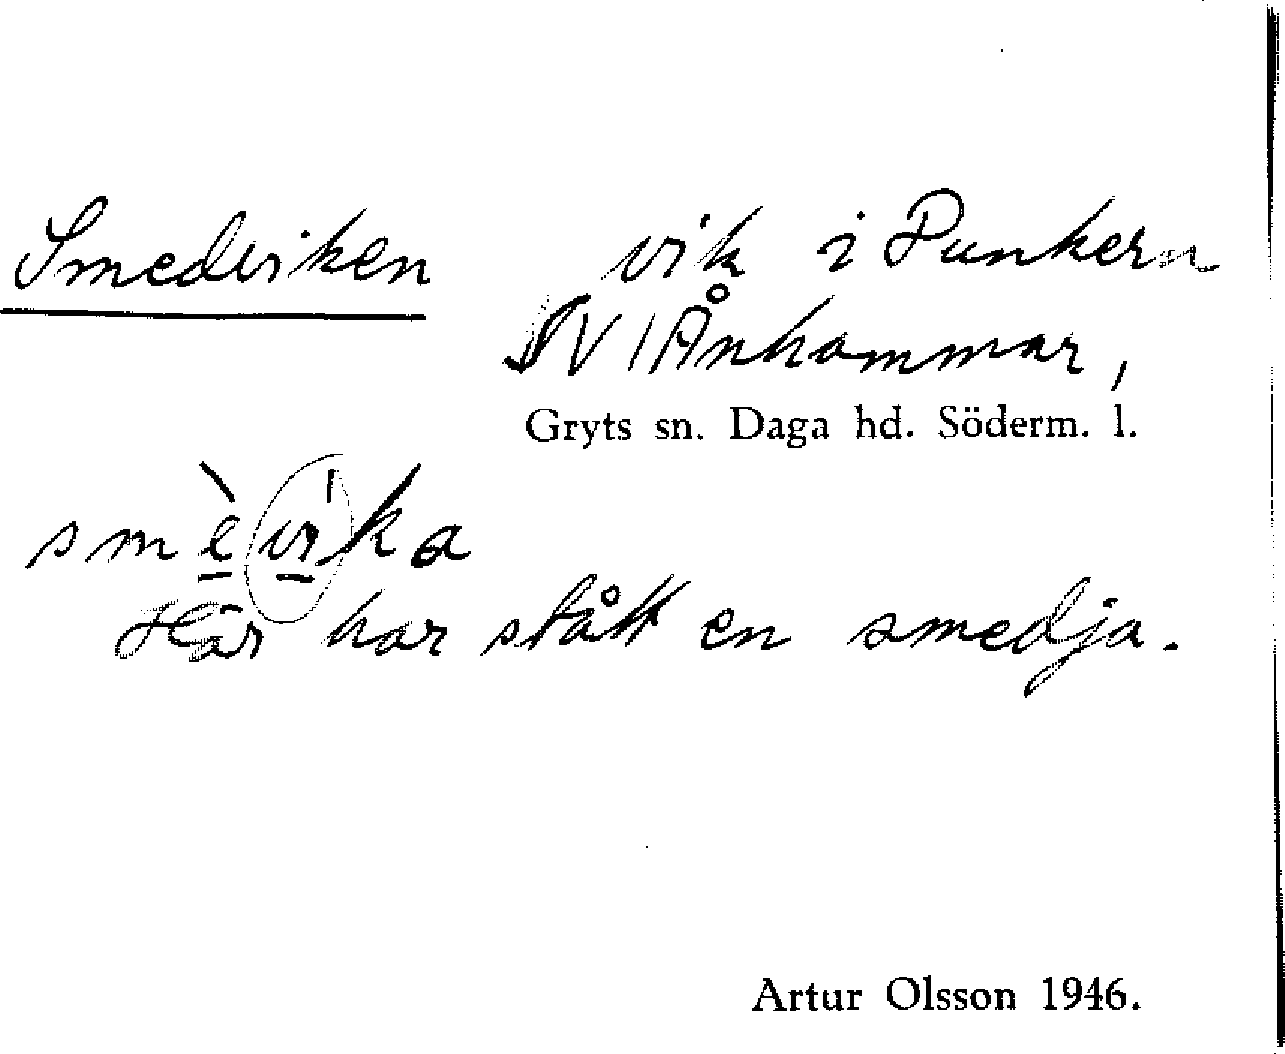 Smedviken vik i Punkern
NV/Ånhammar,
Gryts sn. Daga hd. Söderm. l.
smèvika
Här har stått en smedja.
Artur Olsson 1946.